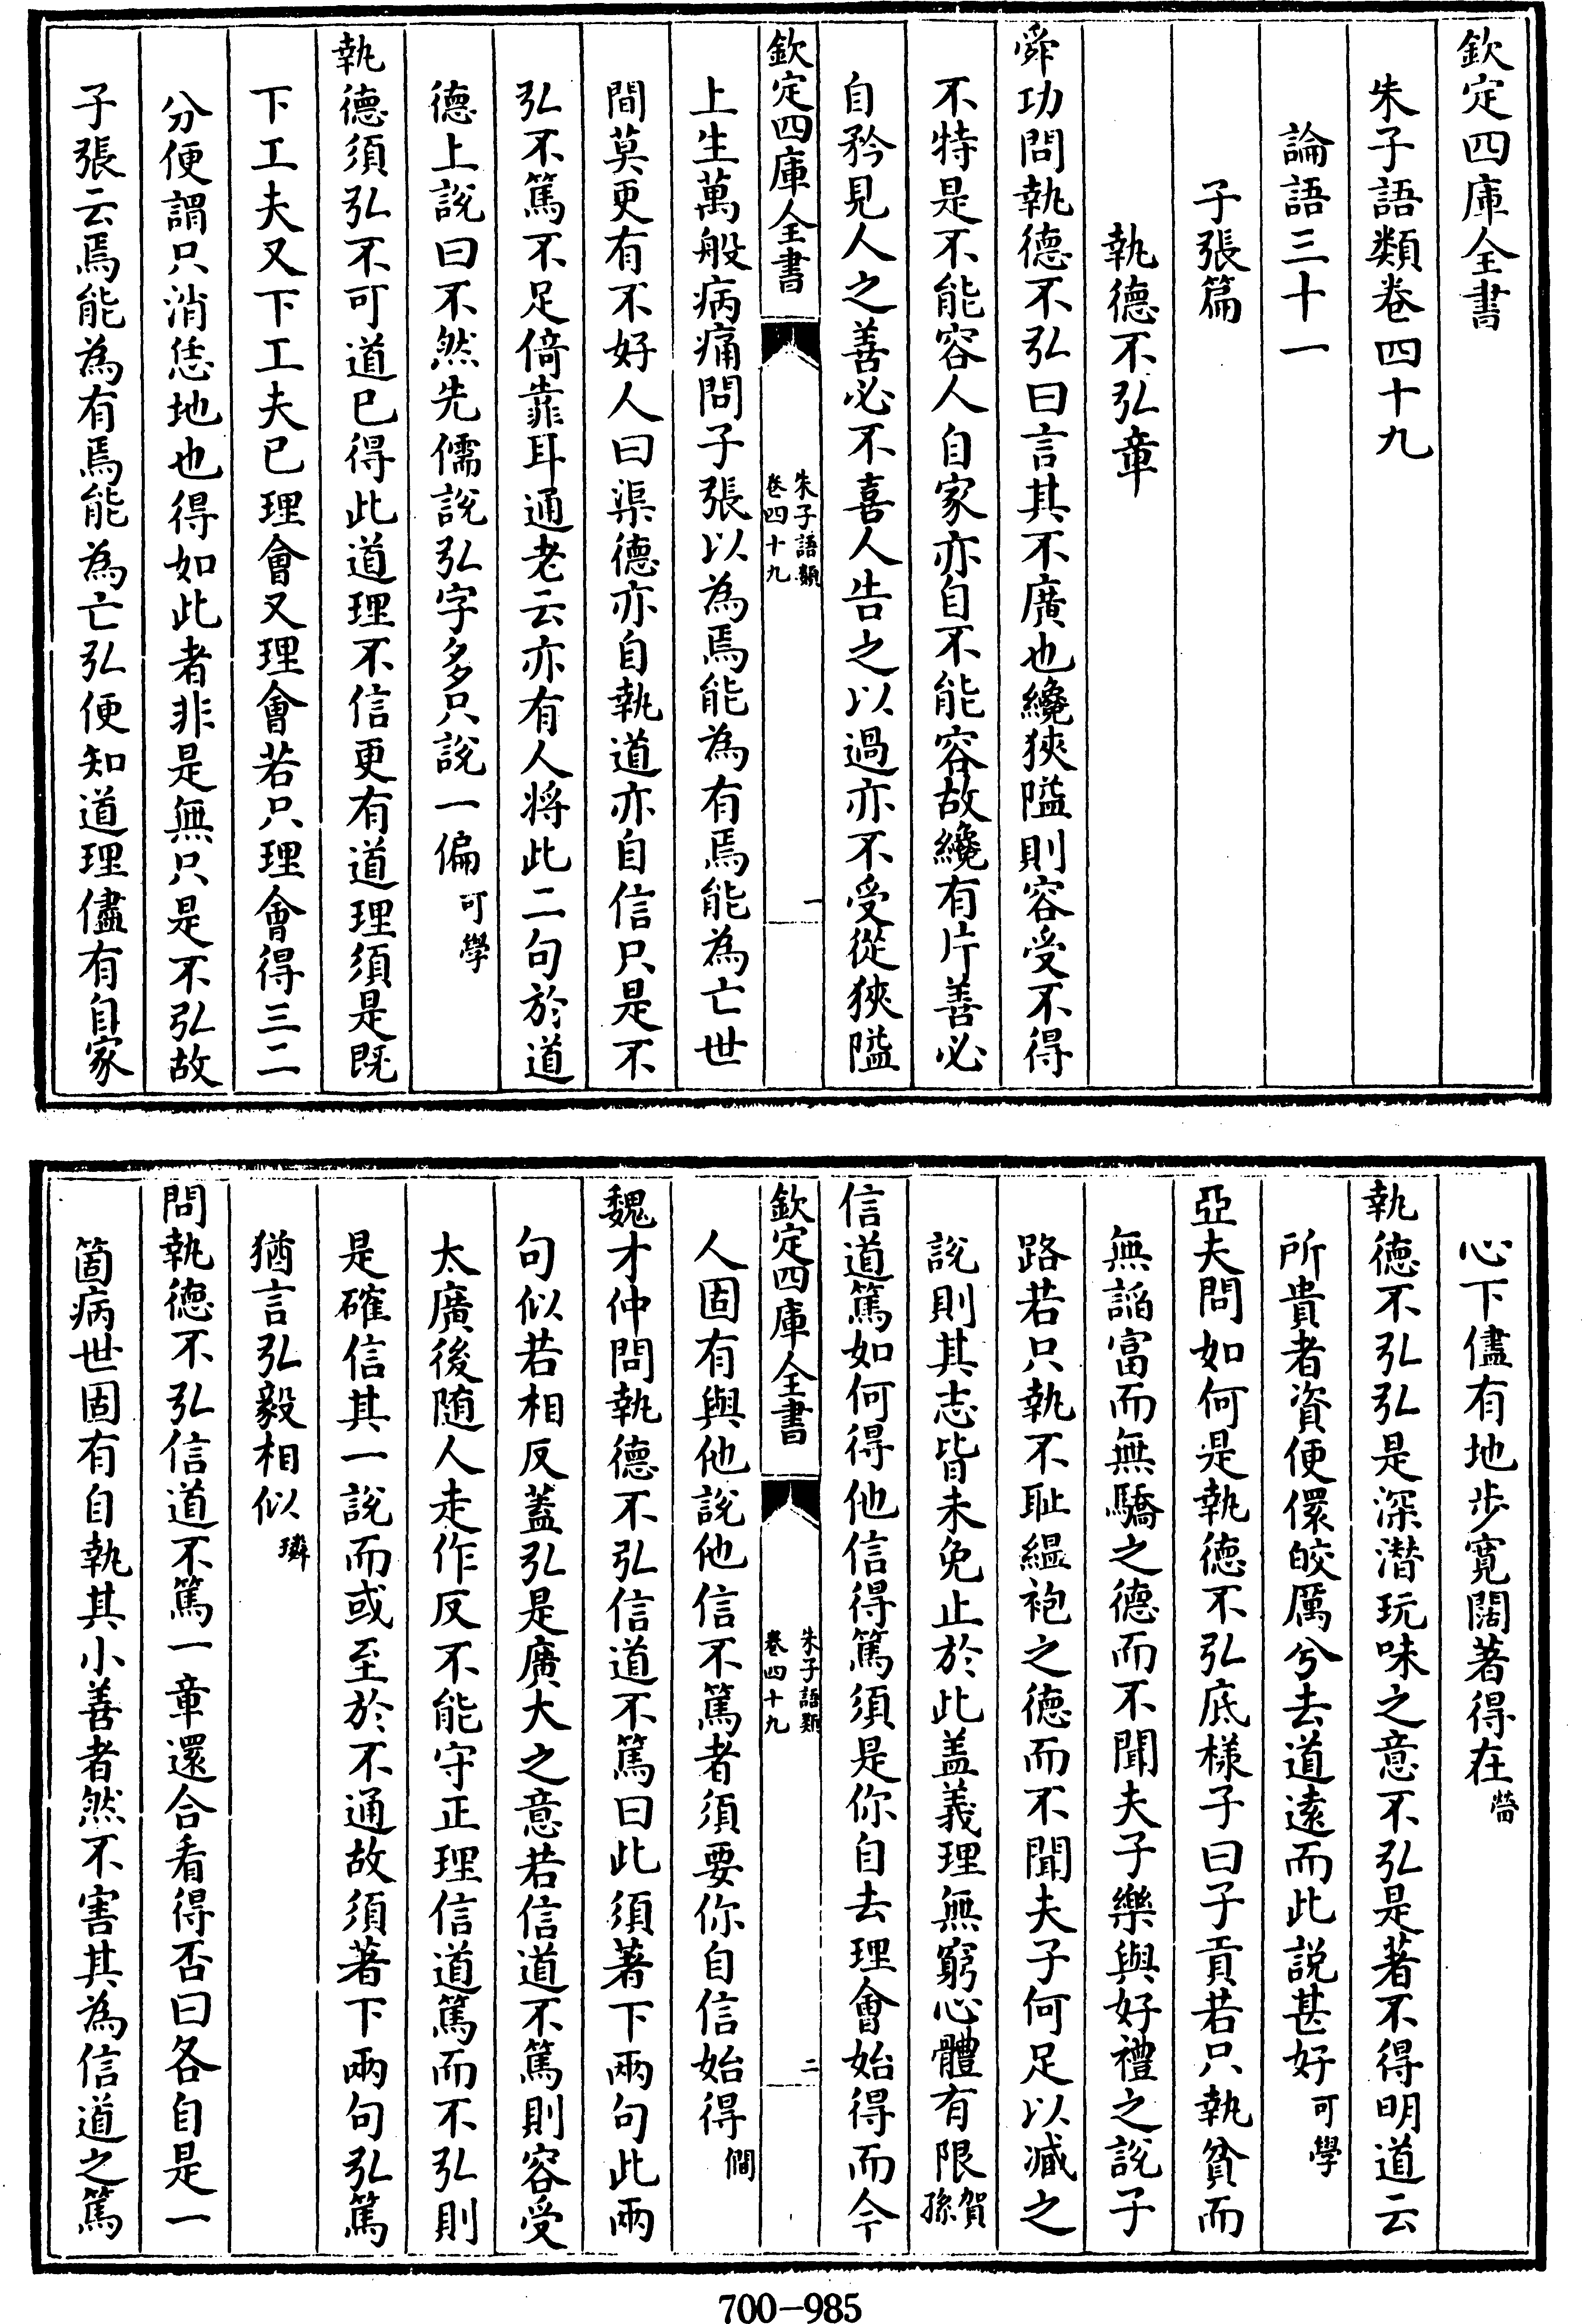 欽定四庫全書
朱子語類卷四十九
論語三十一
子張篇
執德不弘章
舜功問執德不弘曰言其不廣也纔狹隘則容受不得
不特是不能容人自家亦自不能容故纔有片善必
自矜見人之善必不喜人告之以過亦不受從狹隘
欽定四庫全書
朱子語類
卷四十九
一
上生萬般病痛問子張以為焉能為有焉能為亡世
間莫更有不好人曰渠德亦自執道亦自信只是不
弘不篤不足倚靠耳通老云亦有人將此二句於道
德上說曰不然先儒說弘字多只說一偏可學
執德須弘不可道已得此道理不信更有道理須是既
下工夫又下工夫已理會又理會若只理會得三二
分便謂只消恁地也得如此者非是無只是不弘故
子張云焉能為有焉能為亡弘便知道理儘有自家
心下儘有地步寬闊著得在㽦
執德不弘弘是深潛玩味之意不弘是著不得明道云
所貴者資便儇皎厲兮去道遠而此說甚好可學
亞夫問如何是執德不弘底樣子曰子貢若只執貧而
無謟富而無驕之德而不聞夫子樂與好禮之說子
路若只執不耻緼袍之德而不聞夫子何足以臧之
說則其志皆未免止於此蓋義理無窮心體有限賀孫
信道篤如何得他信得篤須是你自去理會始得而今
欽定四庫全書
朱子語類
卷四十九
二
人固有與他說他信不篤者須要你自信始得僩
魏才仲問執德不弘信道不篤曰此須著下兩句此兩
句似若相反蓋弘是廣大之意若信道不篤則容受
太廣後隨人走作反不能守正理信道篤而不弘則
是確信其一說而或至於不通故須著下兩句弘篤
猶言弘毅相似璘
問執德不弘信道不篤一章還合看得否曰各自是一
箇病世固有自執其小善者然不害其為信道之篤
700-985